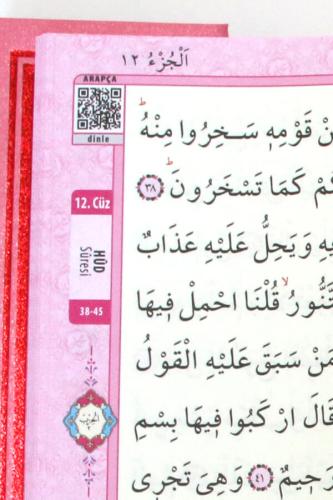 اَلْجُزْءُ ١٢
ARAPÇA
dinle
12. Cüz
HÛD
Sûresi
38-45
قَوْمِه۪ سَخِرُوا مِنْهُ
كَمَا تَسْخَرُونَ ﴿٣٨﴾
وَيَحِلُّ عَلَيْهِ عَذَابٌ
قُلْنَا احْمِلْ ف۪يهَا
مَنْ سَبَقَ عَلَيْهِ الْقَوْلُ
قَالَ ارْكَبُوا ف۪يهَا بِسْمِ
﴿٤١﴾ وَهِيَ تَجْر۪ي